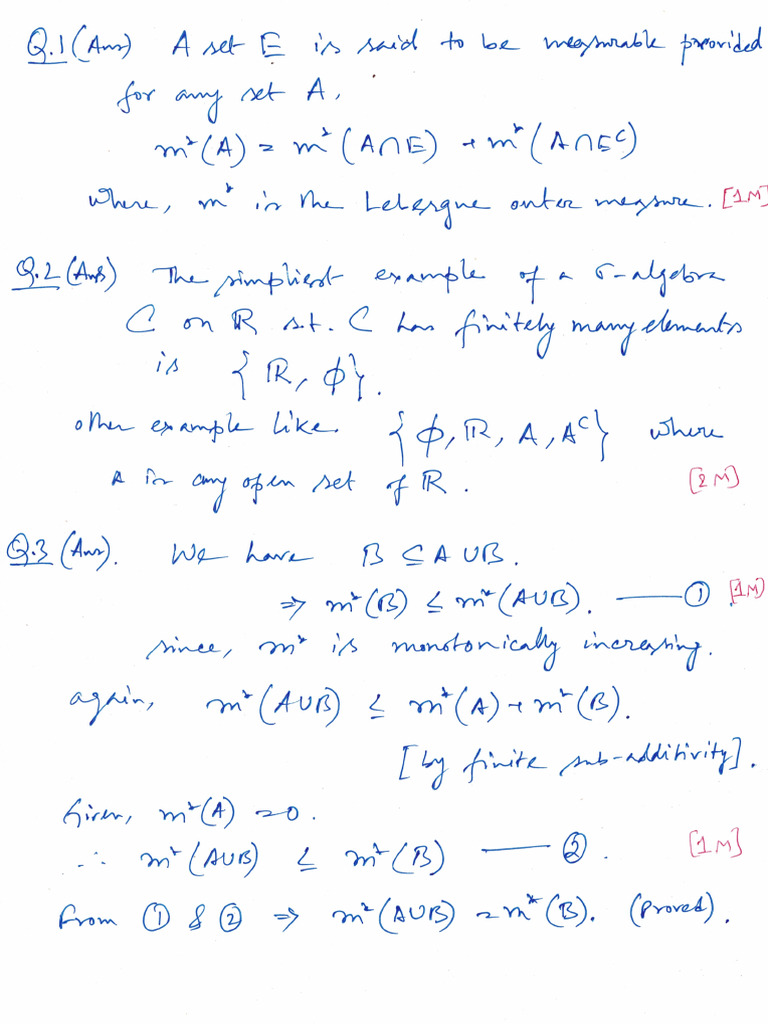 Q.1 (Ans) A set E is said to be measurable provided
for any set A,
m*(A) = m*(A∩E) + m*(A∩E^C)
where, m* is the Lebesgue outer measure. [1M]
Q.2 (Ans) The simpliest example of a σ-algebra
C on ℝ s.t. C has finitely many elements
is {ℝ, ϕ}.
other example like {ϕ, ℝ, A, A^C} where
A is any open set of ℝ. [2M]
Q.3 (Ans). We have B ⊆ A ∪ B.
⇒ m*(B) ≤ m*(A∪B). —— ① [1M]
since, m* is monotonically increasing.
again, m*(A∪B) ≤ m*(A) + m*(B).
[by finite sub-additivity].
Given, m*(A) = 0.
∴ m*(A∪B) ≤ m*(B) —— ②. [1M]
From ① & ② ⇒ m*(A∪B) = m*(B). (Proved).